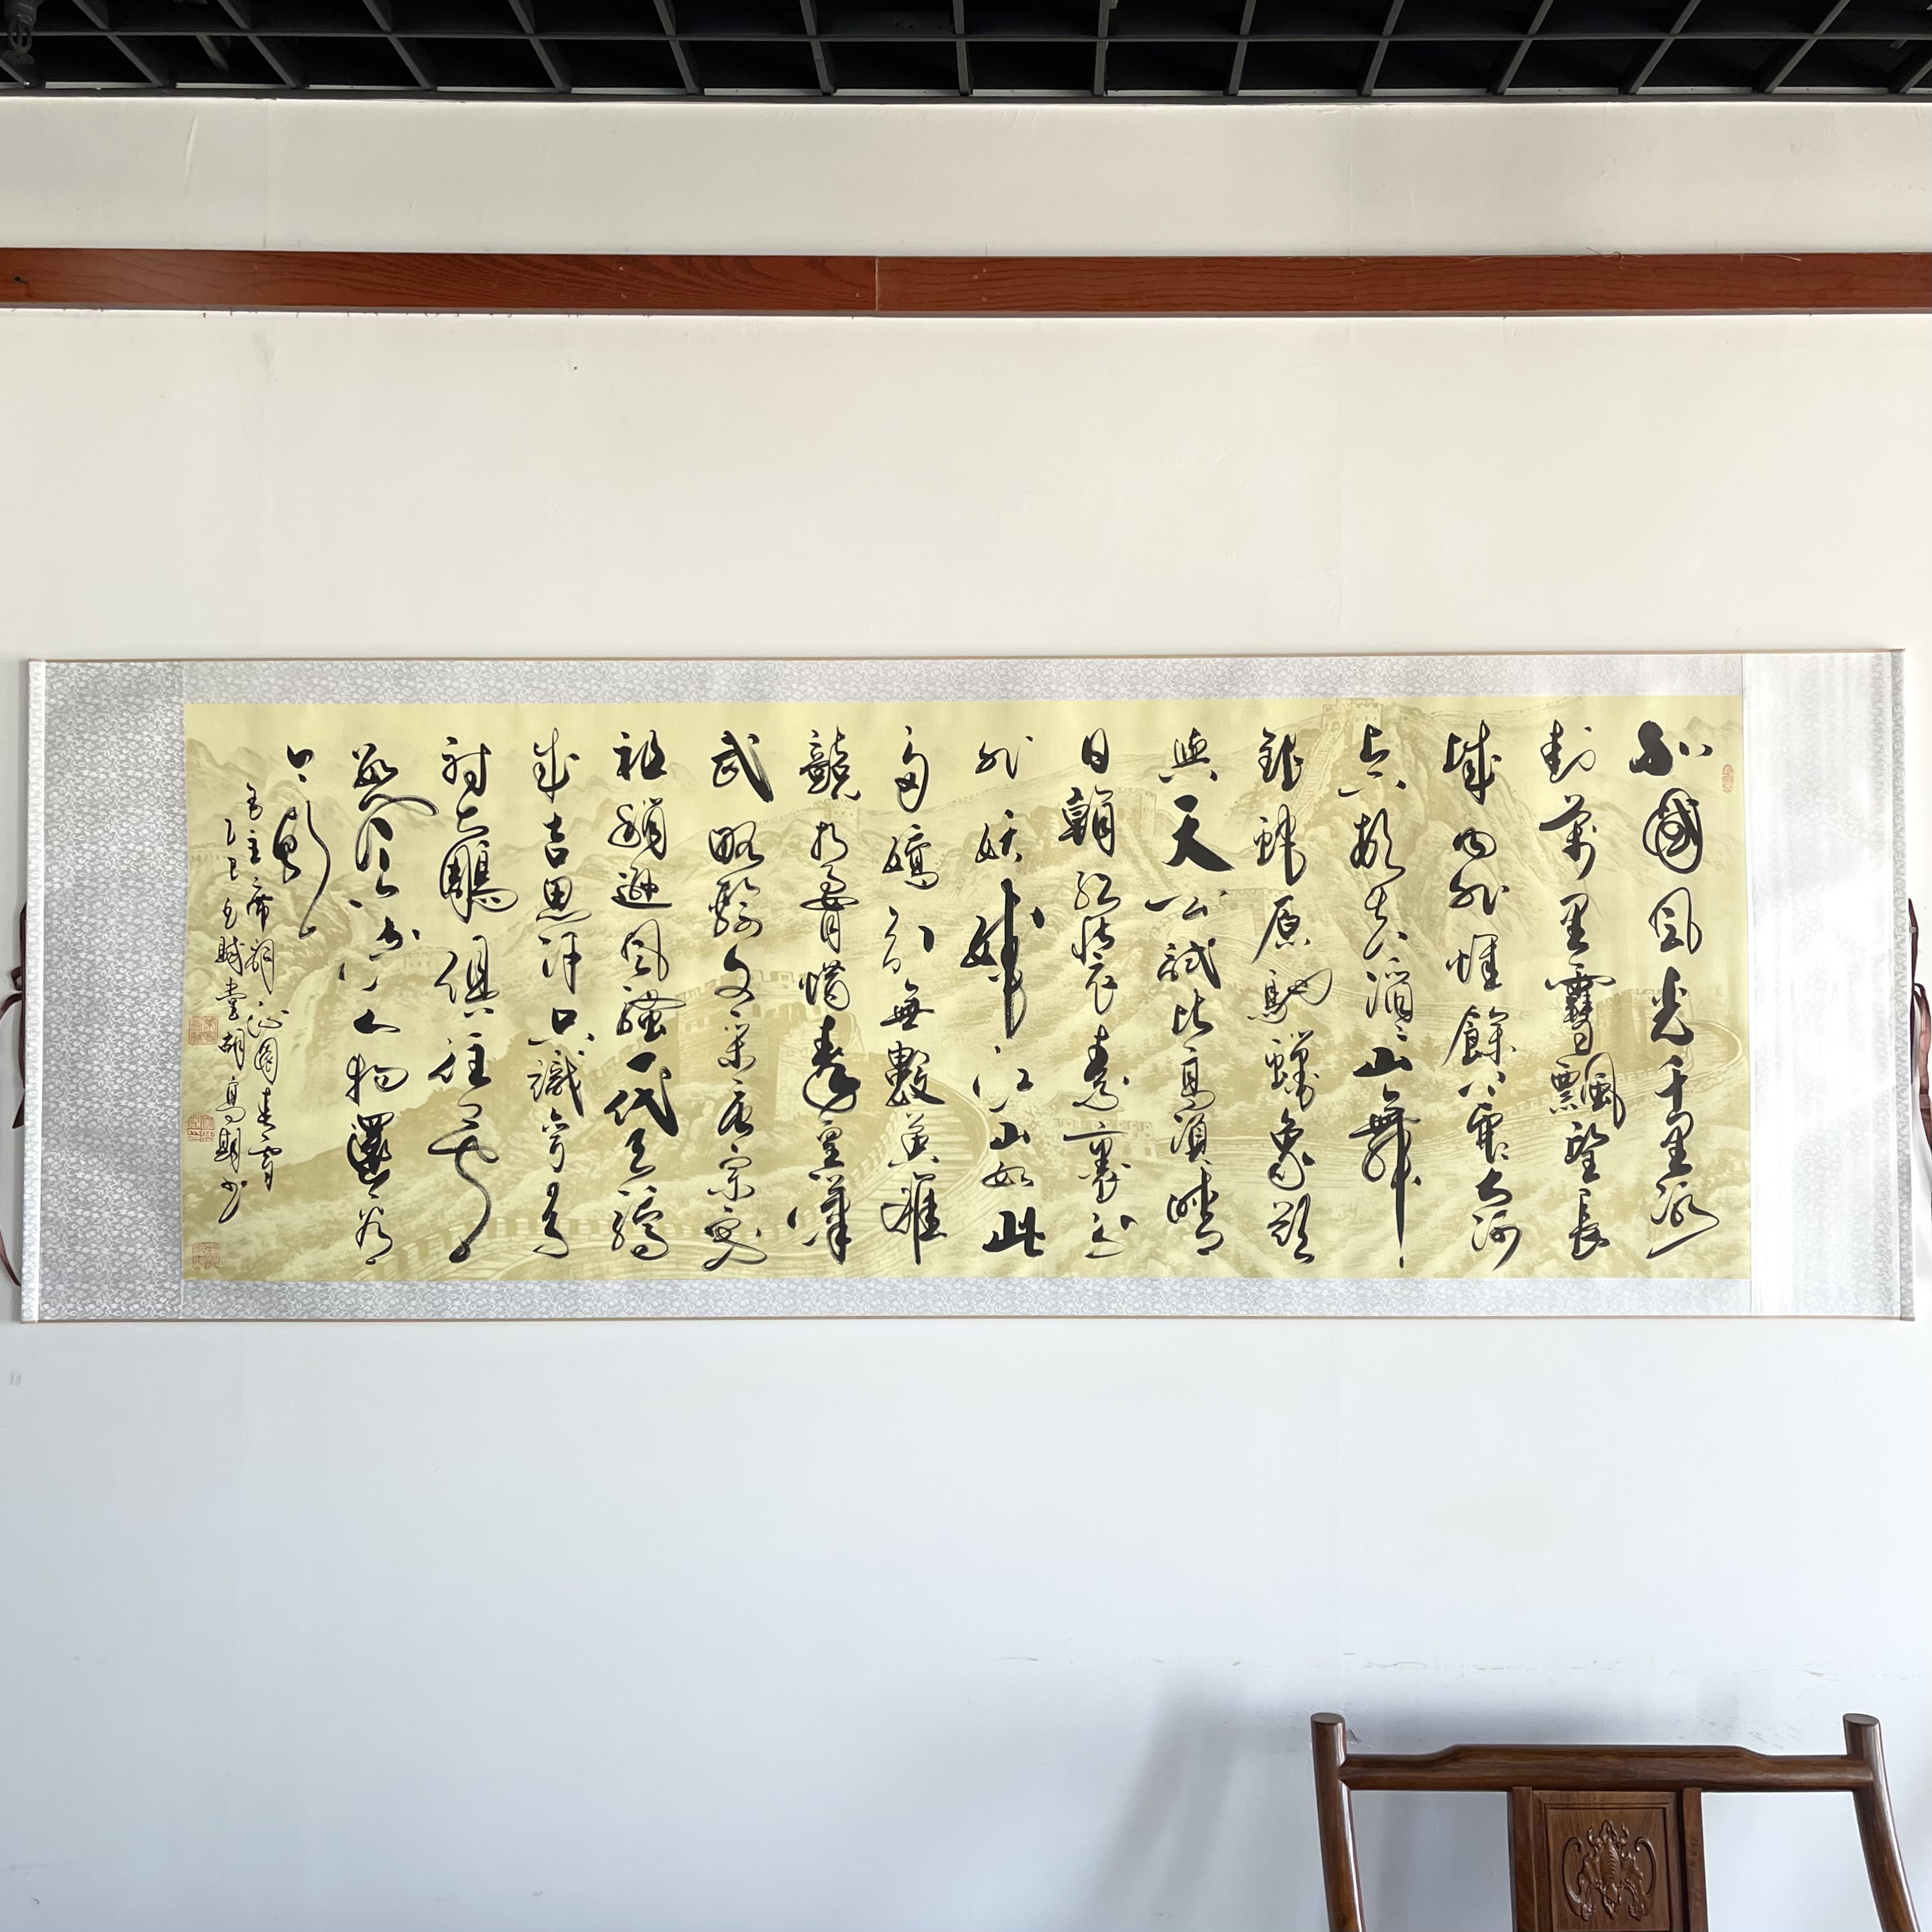 北國風光千里冰
封萬里雪飄望長
城內外惟餘莽莽大河
上下頓失滔滔山舞
銀蛇原馳蠟象欲
與天公試比高須晴
日看紅裝素裹分
外妖嬈江山如此
多嬌引無數英雄
競折腰惜秦皇漢
武略輸文采唐宗宋
祖稍遜風騷一代天驕
成吉思汗只識彎弓
射大鵰俱往矣
數風流人物還看
今朝
毛主席詞沁園春雪
乙巳冬賦堂胡高期書